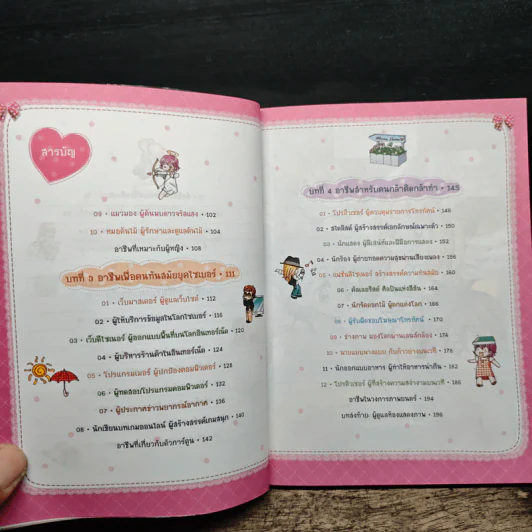 สารบัญ
09 • แมวมอง ผู้ค้นพบดาวจรัสแสง • 102
10 • หมอต้นไม้ ผู้รักษาและดูแลต้นไม้ • 104
อาชีพที่เหมาะกับผู้หญิง • 108
บทที่ 3 อาชีพเพื่อคนทันสมัยยุคไซเบอร์ • 111
01 • เว็บมาสเตอร์ ผู้ดูแลเว็บไซต์ • 112
02 • ผู้ให้บริการข้อมูลในโลกไซเบอร์ • 116
03 • เว็บดีไซเนอร์ ผู้ออกแบบพื้นที่บนโลกอินเทอร์เน็ต • 120
04 • ผู้บริหารร้านค้าในอินเทอร์เน็ต • 124
05 • โปรแกรมเมอร์ ผู้ปกป้องคอมพิวเตอร์ • 128
06 • ผู้ทดสอบโปรแกรมคอมพิวเตอร์ • 132
07 • ผู้ประกาศข่าวพยากรณ์อากาศ • 136
08 • นักเขียนบทเกมออนไลน์ ผู้สร้างสรรค์เกมสนุก • 140
อาชีพที่เกี่ยวกับตัวการ์ตูน • 142
บทที่ 4 อาชีพสำหรับคนกล้าคิดกล้าทำ • 145
01 • โปรดิวเซอร์ ผู้ควบคุมรายการโทรทัศน์ • 146
02 • สไตลิสต์ ผู้สร้างสรรค์เอกลักษณ์เฉพาะตัว • 150
03 • นักแสดง ผู้มีเสน่ห์และฝีมือการแสดง • 152
04 • นักร้อง ผู้ถ่ายทอดความสุขผ่านเสียงเพลง • 156
05 • แฟชั่นดีไซเนอร์ สร้างสรรค์ความทันสมัย • 160
06 • ดีลเลอร์ลิสต์ ศิลปินแห่งสีสัน • 164
07 • นักจัดดอกไม้ ผู้ตกแต่งโลก • 166
08 • ผู้รับผิดชอบโฆษณาโทรทัศน์ • 170
09 • ช่างภาพ มองโลกผ่านเลนส์กล้อง • 174
10 • นายแบบนางแบบ กับก้าวย่างบนเวที • 178
11 • นักออกแบบอาหาร ผู้ทำให้อาหารน่ากิน • 182
12 • โปรดิวเซอร์ ผู้ที่สร้างความสง่างามบนเวที • 186
อาชีพในวงการภาพยนตร์ • 194
บทส่งท้าย ผู้ดูแลห้องแสดงภาพ • 196